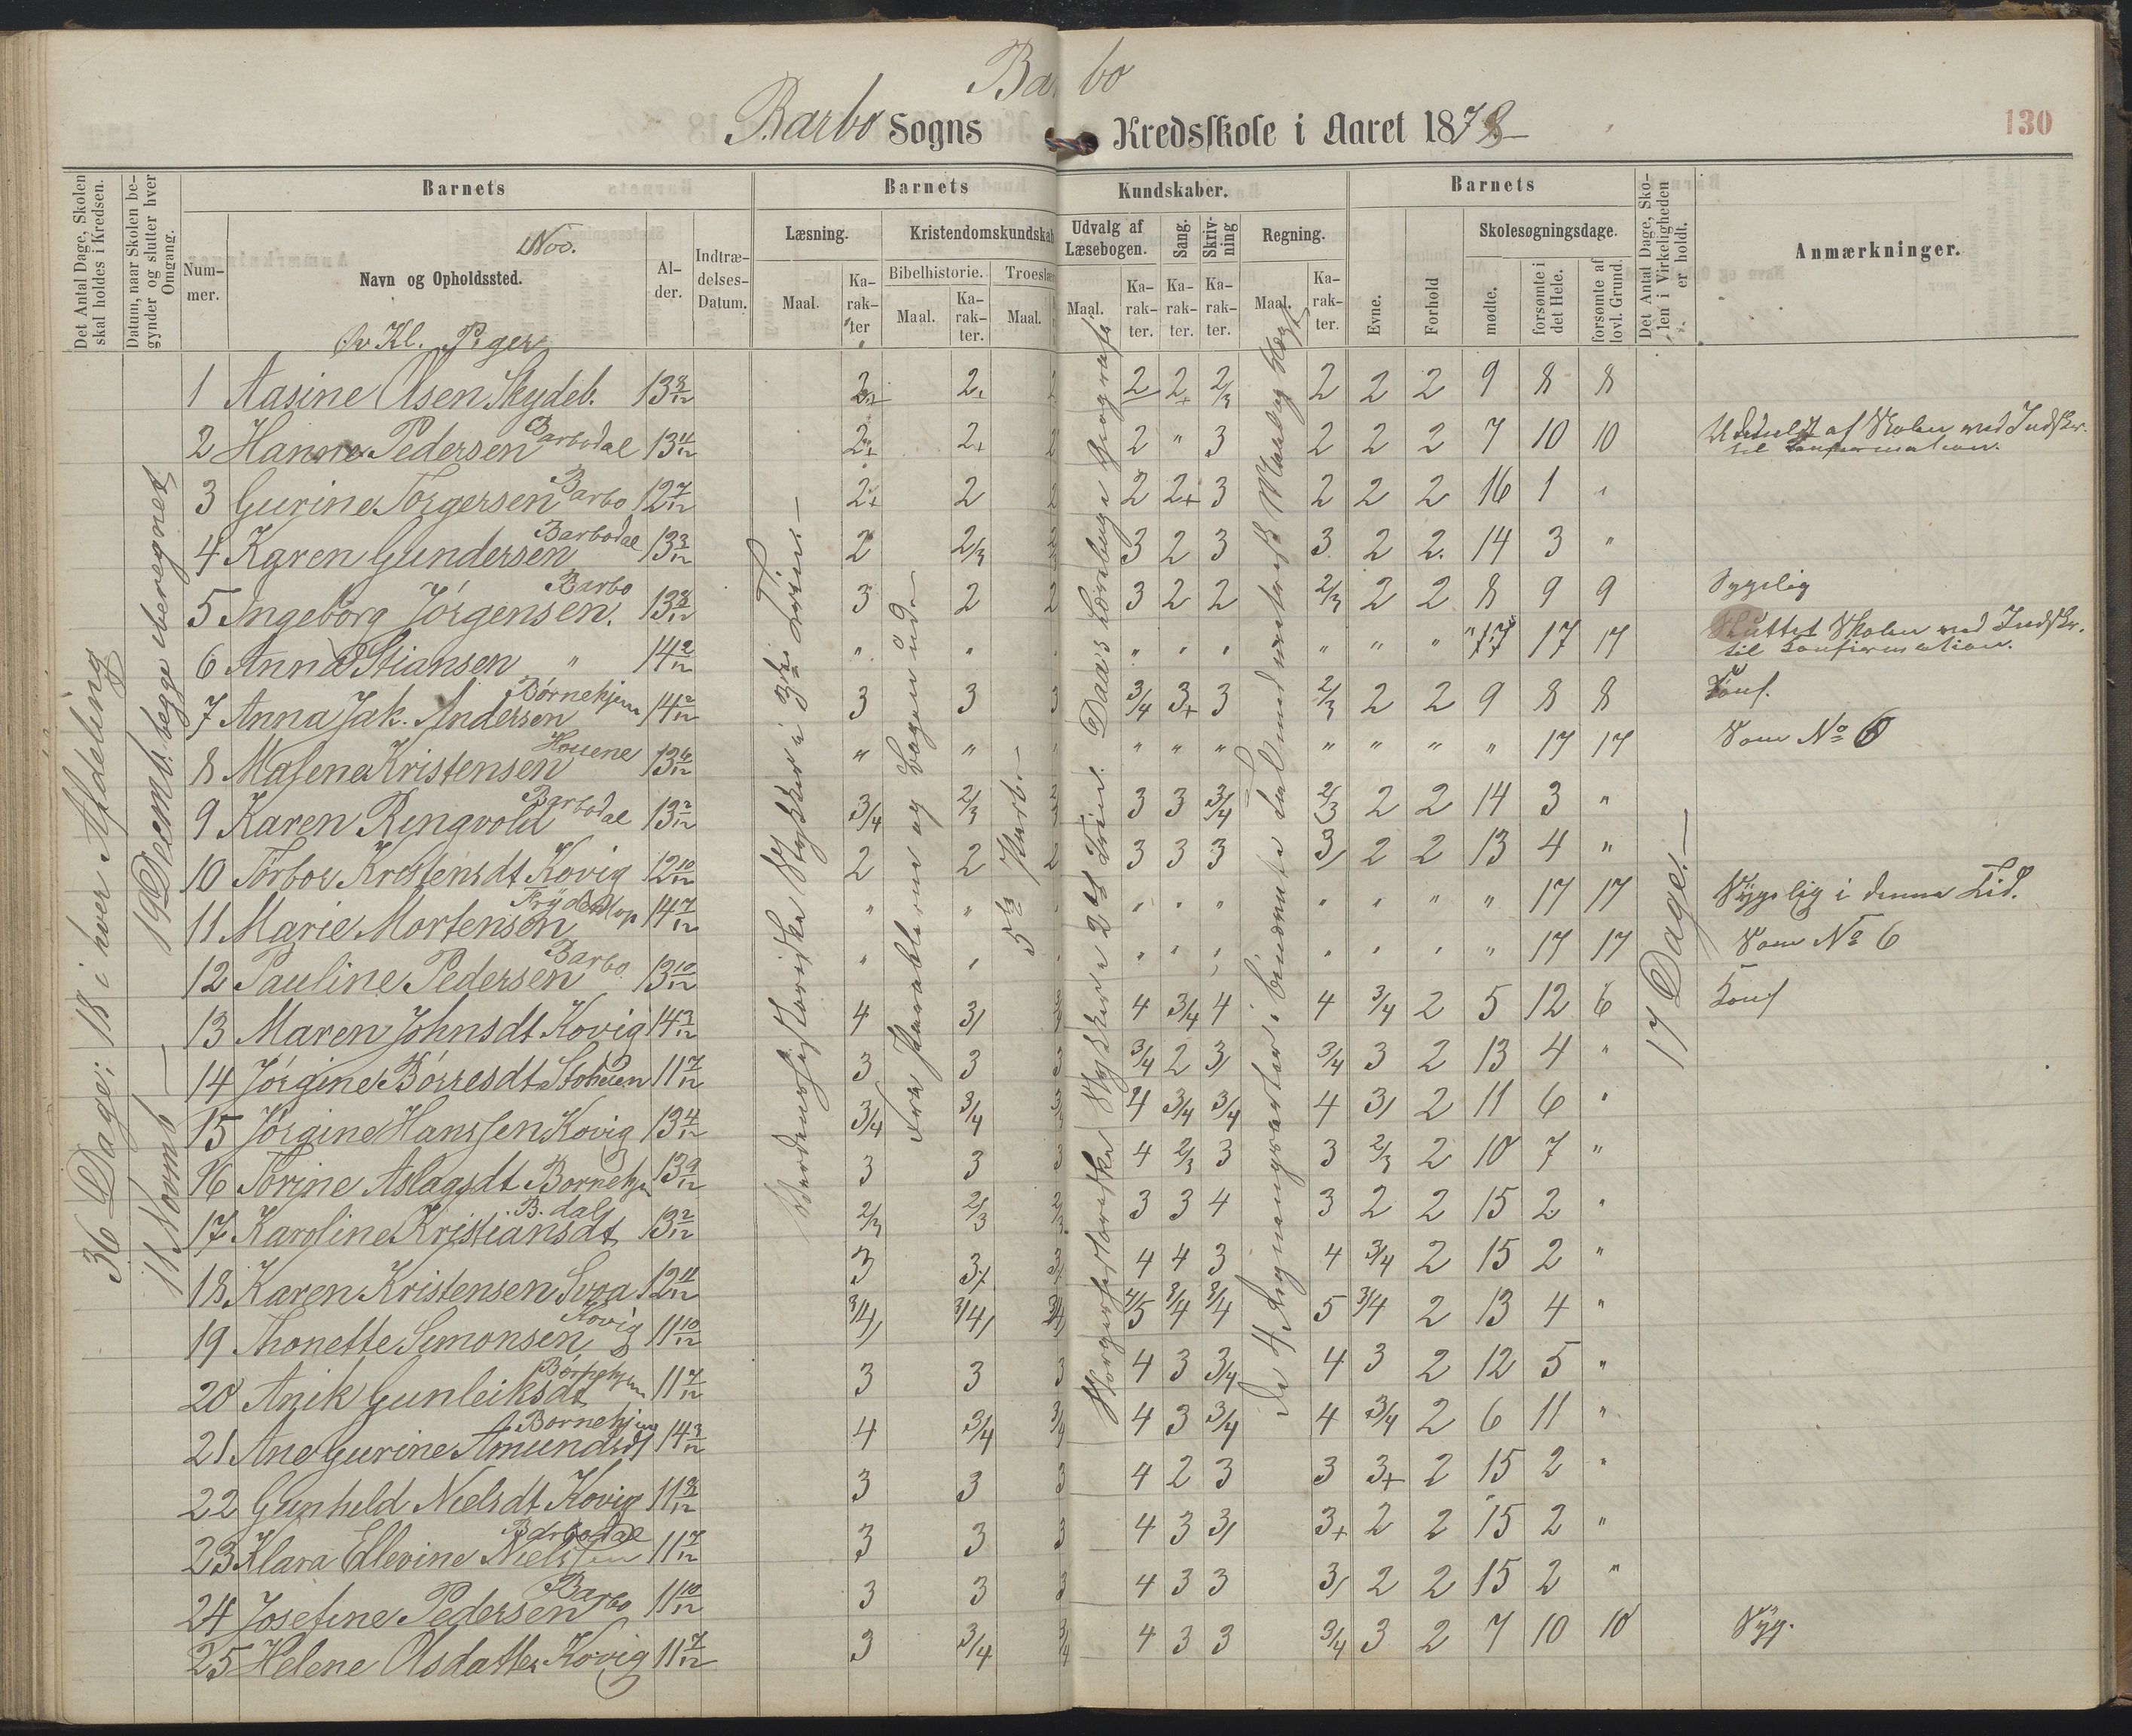 Barbo
Barbo Sogns Kredsskole i Aaret 1878
130
Det Antal Dage, Skolen skal holdes i Kredsen.
Datum, naar Skolen begynder og slutter hver Omgang.
Barnets
Nummer.
Nov.
Navn og Opholdssted.
Kl. Piger
Alder.
Indtrædelses-Datum.
Barnets Kundskaber.
Læsning.
Maal.
Karakter
Kristendomskundskab
Bibelhistorie.
Maal.
Karakter.
Troeslær
Maal.
Udvalg af Læsebogen.
Maal.
Karakter.
Sang.
Karakter.
Skrivning
Karakter.
Regning.
Maal.
Karakter.
Barnets
Evne.
Forhold
Skolesøgningsdage.
mødte.
forsømte i det Hele.
forsømte af lovl. Grund.
Det Antal Dage, Skolen i Virkeligheden er holdt.
Anmærkninger.
36 Dage; 18 i hver Afdeling
18 Novmb — 19 Decmb. begge iberegnet
Verdenshistoriske Stykker i 3die Trin.—
17 Dage.—
1 Aasine Olsen Skydeb. 13 8/12 2+ 2+ 2 2 2+ 2/3 2 2 2 9 8 8
2 Hanna Pedersen Barbodal 13 11/12 2+ 2+ 2 2 " 3 2 2 2 7 10 10 Udskuldt af Skolen med Indskr. til Konfirmation.
3 Gurine Torgersen Barbo 12 7/12 2+ 2 2 2 2+ 3 2 2 2 16 1 "
4 Karen Gundersen Barbodal 13 3/12 2 2/3 3 2 3 3 2 2 14 3 "
5 Ingeborg Jørgensen. Barbo 13 8/12 3 2 2 3 2 2 2/3 2 2 8 9 9 Sygelig
6 Anna Stiansen " 14 2/12 " " " " " " " " 17 17 17 Sluttet Skolen med Indskr. til Konfirmation.
7 Anna Jak. Andersen Børnehjem 14 2/12 3 3 3 3/4 3+ 3 2/3 2 2 9 8 8 Konf.
8 Malene Kristensen Houene 13 6/12 " " " " " " " " " 17 17 Som No 6
9 Karen Ringvold Barbodal 13 2/12 3/4 2/3 3 3 3/4 2/3 2 2 14 3 "
10 Torbor Kristensdt Kovig 12 10/12 2 2 2 3 3 3 3/ 2 2 13 4 "
11 Marie Mortensen 14 7/12 " " " " " " " " " 17 17 Sygelig i denne Tid.
12 Pauline Pedersen Barbo 13 10/12 " " " " " " " " " 17 17 Som No 6
13 Maren Johnsdt Kovig 14 3/12 4 3/ 4 3/4 4 4 3/4 2 5 12 6 Konf
14 Jørgine Børresdt 11 7/12 3 3 3 3/4 2 3/ 3/4 3 2 13 4 "
15 Jørgine Hanssen Kovig 13 4/12 3/4 3/4 4 3/4 3/4 4 3/ 2 11 6 "
16 Torine Aslagsdt Børnehjm 13 9/12 3 3 3 4 2/3 3 3 2/3 2 10 7 "
17 Karoline Kristiansdt B.dal 13 2/12 2/3 2/3 2/3 3 3 4 3 2 2 15 2 "
18 Karen Kristensen Svoa 12 11/12 3 3+ 3/ 4 4 3 4 3/4 2 15 2 "
19 Thonette Simonsen Kovig 11 10/12 3/4/ 3/4/ 4/5 3/4 3/4 5 3/4 2 13 4 "
20 Anik Gunleiksdt Børnehjem 11 7/12 3 3 3 4 3 3/4 4 3 2 12 5 "
21 Ane Gurine Amundsdt Børnehjem 14 3/12 4 3/4 3/4 4 3 3/4 4 3/4 2 6 11 "
22 Gunhild Nielsdt Kovig 11 9/12 3 3 3 4 2 3 3 3+ 2 15 2 "
23 Klara Ellevine Nielssen Barbodal 11 7/12 3 3 3 4 3 3/ 3+ 2 2 15 2 "
24 Josefine Pedersen Barbo 11 10/12 3 3 3 4 3 3 3/ 2 2 15 2 "
25 Helene Olsdatter Kovig 11 7/12 3 3/4 3/4 4 3 3 3/4 3 2 7 10 10 Syg.